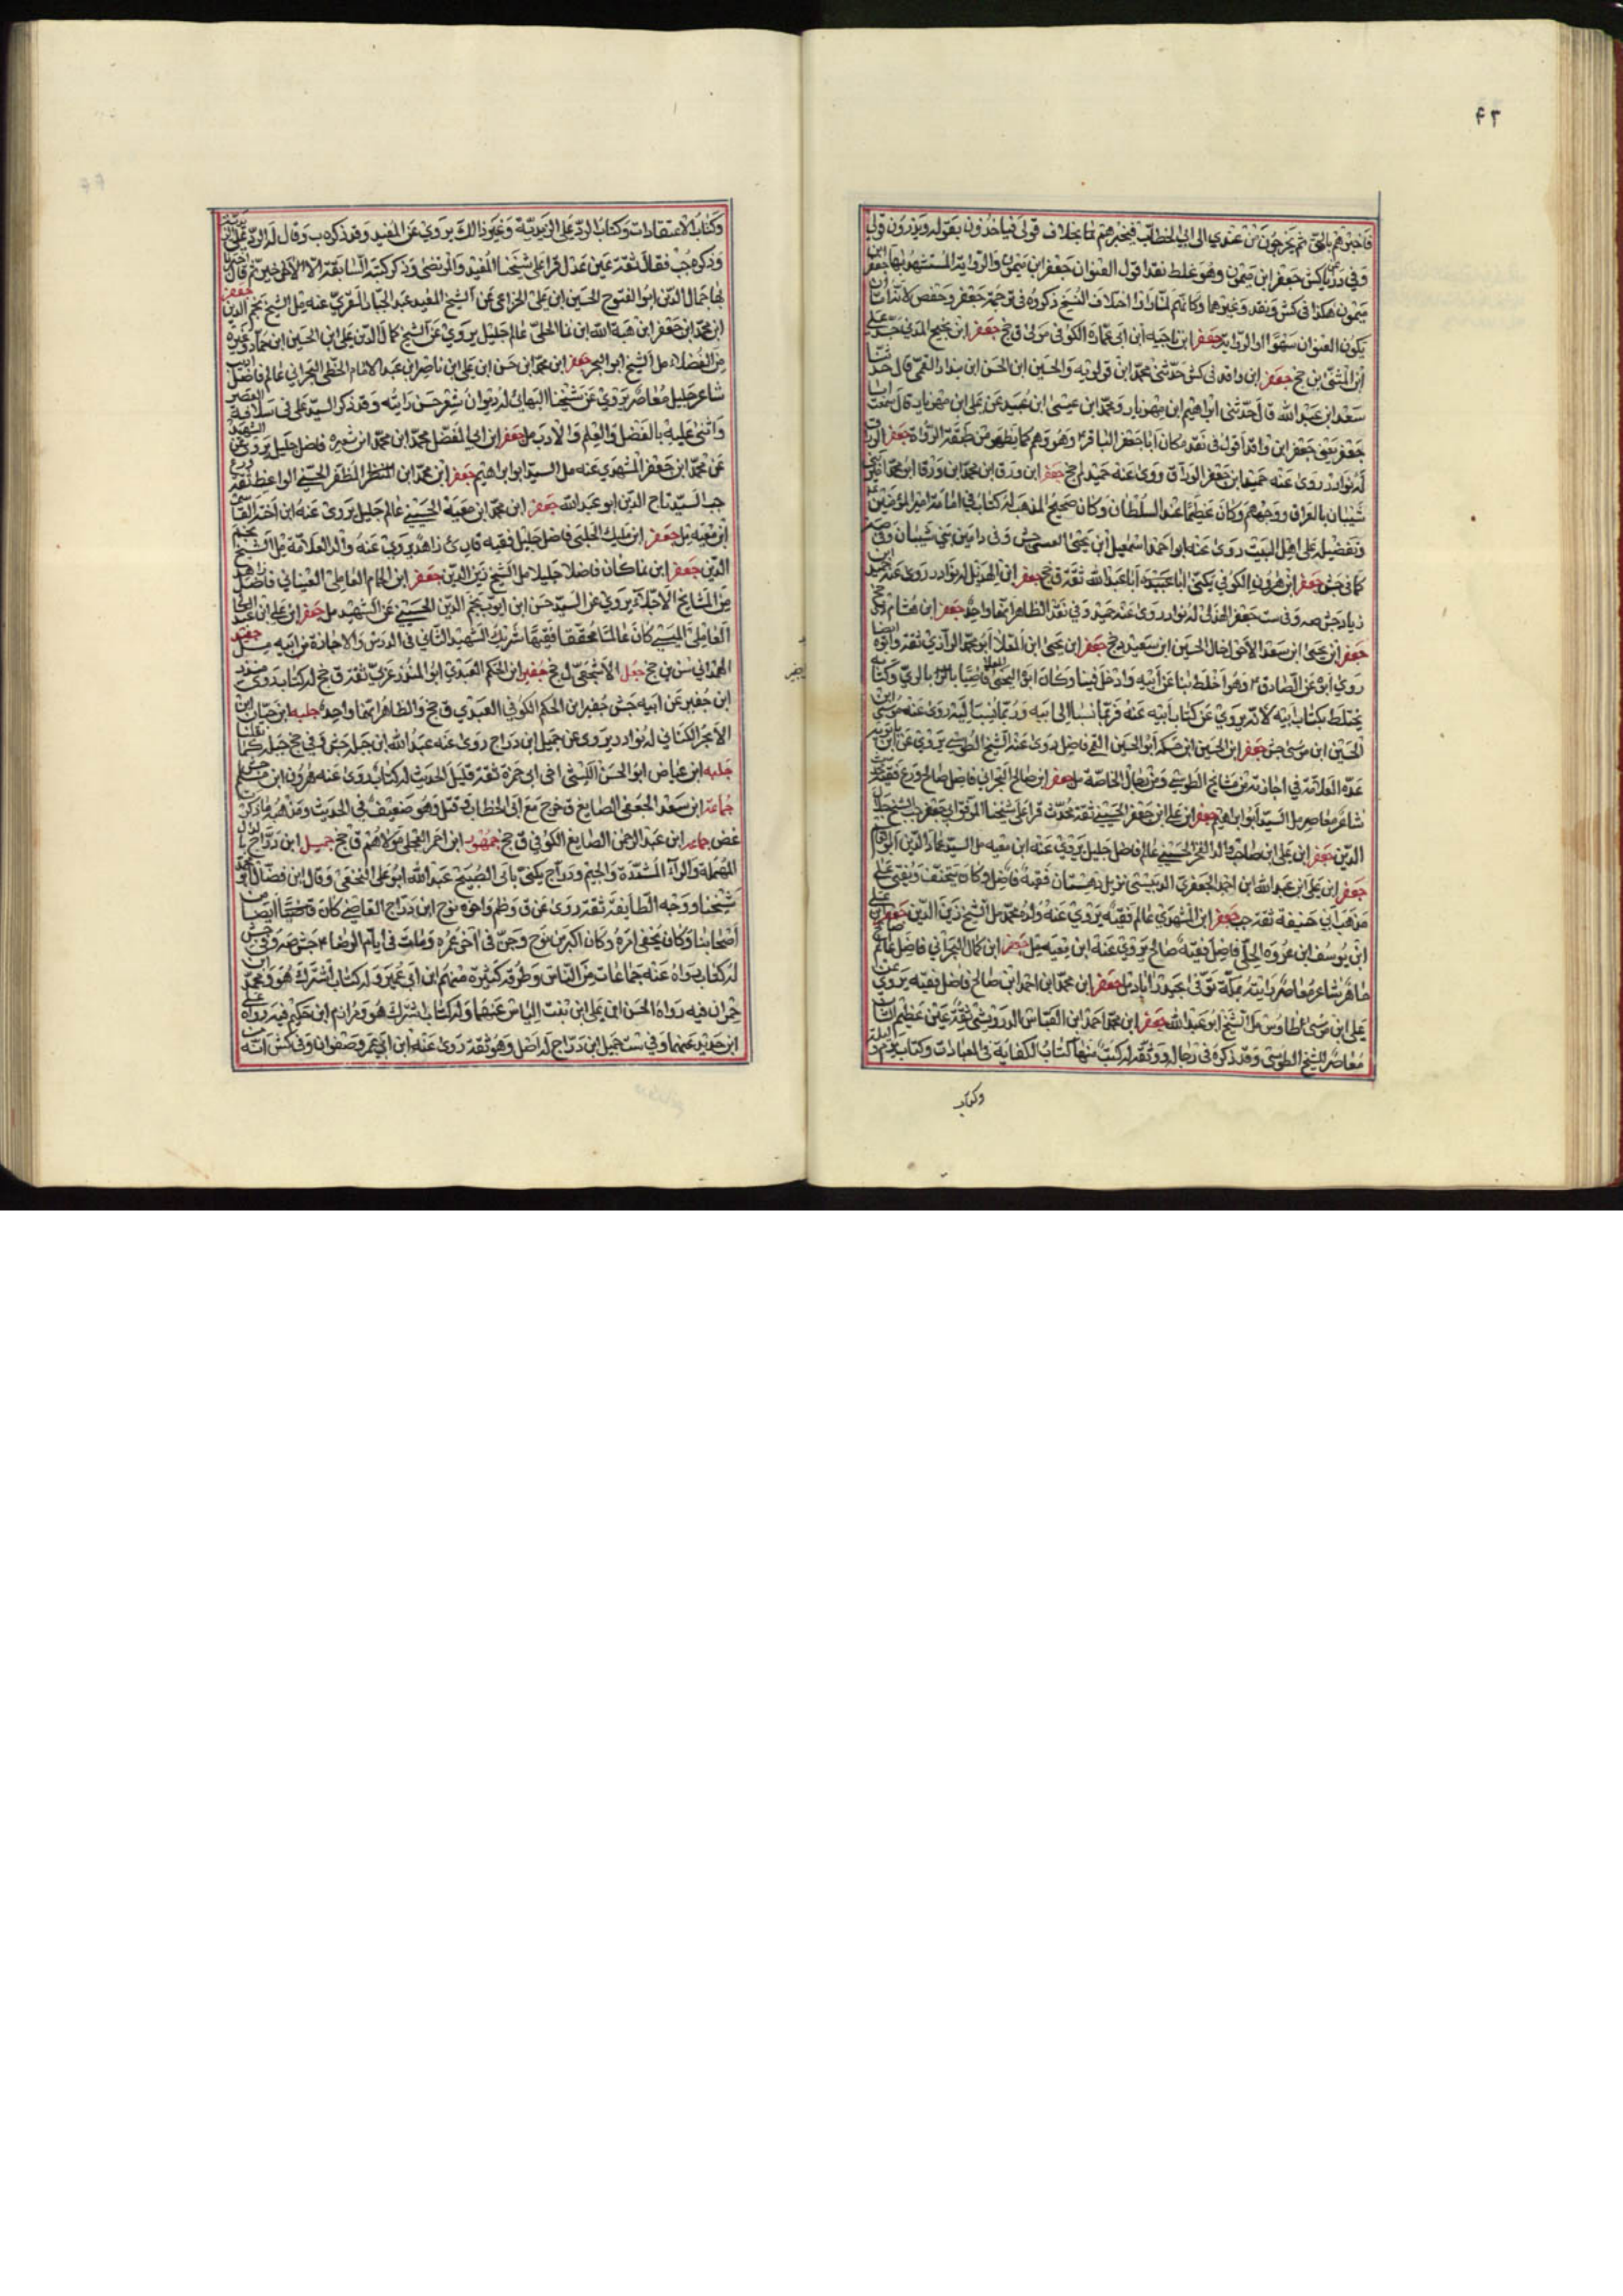 ۴۳
فاخبرهم بالحق ثم يخرجون من عندي الى ابي الخطاب فيخبرهم بما بخلاف قولي فياخذون بقوله ويذرون قولي
ميمون هكذا في كش ونقد وغيرهما
يكون العنوان سهوا او الرواية جعفر ابن ناجيه ابن ابي عمارة الكوفي مولى ق جخ جعفر ابن نجيح المدني
ابن المثنى ق جخ جعفر ابن واقد في كش حدثني محمد ابن قولويه والحسين ابن الحسن ابن بندار القمي قال حدثنا
سعد ابن عبد الله قال حدثني ابراهيم ابن مهزيار ومحمد ابن عيسى ابن عبيد عن علي ابن مهزيار قال سمعت ابا
جعفر يعني جعفر ابن واقد اقول في نقد مكان ابا جعفر الباقر وهو وهم كما يظهر من طبقة الرواة جعفر
له نوادر روى عنه حميد ابن جعفر الوراق روى عنه حميد لم جخ جعفر ابن ورقا ابن محمد ابن ورقا ابو محمد امير بني
شيبان بالعراق ووجههم وكان عظيما عند السلطان وكان صحيح المذهب له كتاب في امامة امير المؤمنين
وتفضيله على اهل البيت روى عنه ابو احمد اسمعيل ابن يحيى العبسي جش
كما في جش جعفر ابن هرون الكوفي يكنى ابا عبد الله ثقة ق جخ جعفر ابن الهذيل له نوادر روى عنه حميد ابن
زياد جش صه وفي ست جعفر الهذلي له نوادر روى عنه حميد وفي نقد الظاهر انهما واحد جعفر ابن هشام
جعفر ابن يحيى ابن سعد الاحول خال الحسين ابن سعيد جخ جعفر ابن يحيى ابن العلا ابو محمد الرازي ثقة وابوه ايضا
روى ابوه عن الصادق وهو اخلط بنا عن ابيه وادخل فينا وكان ابوه يحيى قاضيا بالري وكتابه
يختلط بكتاب ابيه لانه يروي عن كتاب ابيه عنه فربما نسب الى ابيه وربما نسب اليه روى عنه موسى ابن
الحسين ابن موسى جش جعفر ابن الحسين ابن حسكه ابو الحسين القمي فاضل روى عنه الشيخ الطوسي يروي عن ابن بابويه
عده العلامة في اجازته من مشايخ الطوسي ومن رجال الخاصة مل جعفر ابن صالح البحراني فاضل صالح ورع فقيه
شاعر معاصر مل السيد ابو ابراهيم جعفر ابن علي ابن جعفر الحسيني ثقة محدث قرا على شيخنا الموفق ابي جعفر جب الشيخ جلال
الدين جعفر ابن علي ابن صاحب دار الصخر الحسيني عالم فاضل جليل يروي عنه ابن معيه مل السيد عماد الدين ابو القاسم
جعفر ابن علي ابن عبد الله ابن احمد الجعفري الدبيسي نزيل دهستان فقيه فاضل وكان يتحنف ويفتي على
مذهب ابي حنيفة ثقة جب جعفر ابن المشهدي عالم فقيه يروي عنه ولده محمد مل الشيخ زين الدين جعفر
ابن يوسف ابن عروه الحلي فاضل فقيه صالح يروي عنه ابن معيه مل جعفر ابن كمال البحراني فاضل عالم صالح
ماهر شاعر معاصر رايته بمكة توفي بحيدراباد مل جعفر ابن محمد ابن احمد ابن صالح فاضل فقيه يروي عن
علي ابن موسى ابن طاوس مل الشيخ ابو عبد الله جعفر ابن محمد ابن احمد ابن العباس الدوريستي ثقة عين عظيم الشان
معاصر للشيخ الطوسي وقد ذكره في رجاله ووثقه له كتب منها كتاب الكفاية في العبادات وكتاب يوم وليلة
وكتاب
وكتاب الاعتقادات وكتاب الرد على الزيدية وغير ذالك يروي عن المفيد وقد ذكره ب وقال له الرد على الزيدية
وذكره جب فقال ثقة عين عدل قرا على شيخنا المفيد والمرتضى وذكر كتبه السابقة الا الاخير ثم قال اخبرنا
بها جمال الدين ابو الفتوح الحسين ابن علي الخزاعي عن الشيخ المفيد عبد الجبار المقري عنه مل الشيخ نجم الدين جعفر
ابن محمد ابن جعفر ابن هبة الله ابن نما الحلي عالم جليل يروي عن الشيخ كمال الدين علي ابن الحسين ابن حماد وغيره
من الفضلاء مل الشيخ ابو البحر جعفر ابن محمد ابن حسن ابن علي ابن ناصر ابن عبد الامام الخطي البحراني عالم فاضل اديب
شاعر جليل معاصر يروي عن شيخنا البهائي له ديوان شعر حسن رايته وقد ذكر السيد علي في سلافة العصر
واثنى عليه بالفضل والعلم والادب مل جعفر ابن ابي الفضل محمد ابن محمد ابن شعره فاضل جليل يروي
عن محمد ابن جعفر المشهدي عنه مل السيد ابو ابراهيم جعفر ابن محمد ابن المظفر الحسيني الواعظ ثقه
جب السيد تاج الدين ابو عبد الله جعفر ابن محمد ابن معية الحسيني عالم جليل يروي عنه ابن اخته القاسم
ابن معيه مل جعفر ابن مليك الحلبي فاضل جليل فقيه قارئ زاهد يروي عنه والد العلامة مل الشيخ نجيم
الدين جعفر ابن نما كان فاضلا جليلا مل الشيخ زين الدين جعفر ابن الحسام العاملي العيناثي فاضل زاهد
من المشايخ الاجلاء يروي عن السيد حسن ابن ايوب نجم الدين الحسيني عن الشهيد مل جعفر ابن علي ابن عبد العالي
العاملي الميسي كان عالما محققا فقيها شريك الشهيد الثاني في الدرس والاجازة من ابيه مل
الهمداني سن ين جخ جعل الاشجعي ل جخ جفير ابن الحكم العبدي ابو المنذر عربي ثقة ق جخ له كتاب روى منذر
ابن جفير عن ابيه جش جفير ابن الحكم الكوفي العبدي ق جخ والظاهر انهما واحد جلبه ابن حيان ابن
الابجر الكناني له نوادر يروي عن جميل ابن دراج روى عنه عبد الله ابن جبله جش وفي جخ جبله كما نقلنا
جلبه ابن عياض ابو الحسن الليثي اخي ابي حمزة ثقة قليل الحديث له كتاب روى عنه هرون ابن مسلم جش
جماعة ابن سعد الجعفي الصايغ ق خرج مع ابي الخطاب وقتل وهو ضعيف في الحديث ومذهبه ما ذكرت
غض جماعه ابن عبد الرحمن الصايغ الكوفي ق جخ جمهور ابن احمر العجلي مولاهم ق جخ جميل ابن دراج بالدال
المهملة والراء المشددة والجيم ودراج يكنى بابي الصبيح عبد الله ابو علي النخعي وقال ابن فضال ابو محمد
شيخنا ووجه الطايفة ثقة روى عن ق وظم واخوه نوح ابن دراج القاضي كان قاضيا ايضا من
اصحابنا وكان يخفي امره وكان اكبر من نوح وعمي في اخر عمره ومات في ايام الرضا جش صه وفي جش
له كتاب رواه عنه جماعات من الناس وطرقه كثيرة منهم ابن ابي عمير وله كتاب اشترك هو ومحمد ابن
حمران فيه رواه الحسن ابن علي ابن بنت الياس عنهما وله كتاب اشترك هو ومرازم ابن حكيم فيه رواه علي
ابن حديد عنهما وفي ست جميل ابن دراج له اصل وهو ثقة روى عنه ابن ابي عمير وصفوان وفي كش انه من